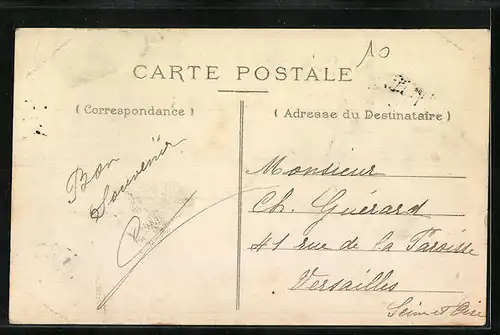 10
CARTE POSTALE
( Correspondance )
( Adresse du Destinataire )
Bon
Souvenir
Monsieur
Ch. Guérard
41 rue de la Paroisse
Versailles
Seine et Oise